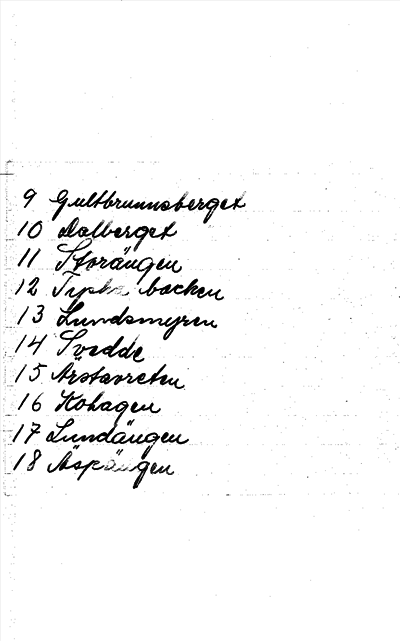 9 Gultbrunnsberget
10 Dalberget
11 Storängen
12 backen
13 Lundsmyren
14 Svedde
15
16 Kohagen
17 Lundängen
18 Äspängen